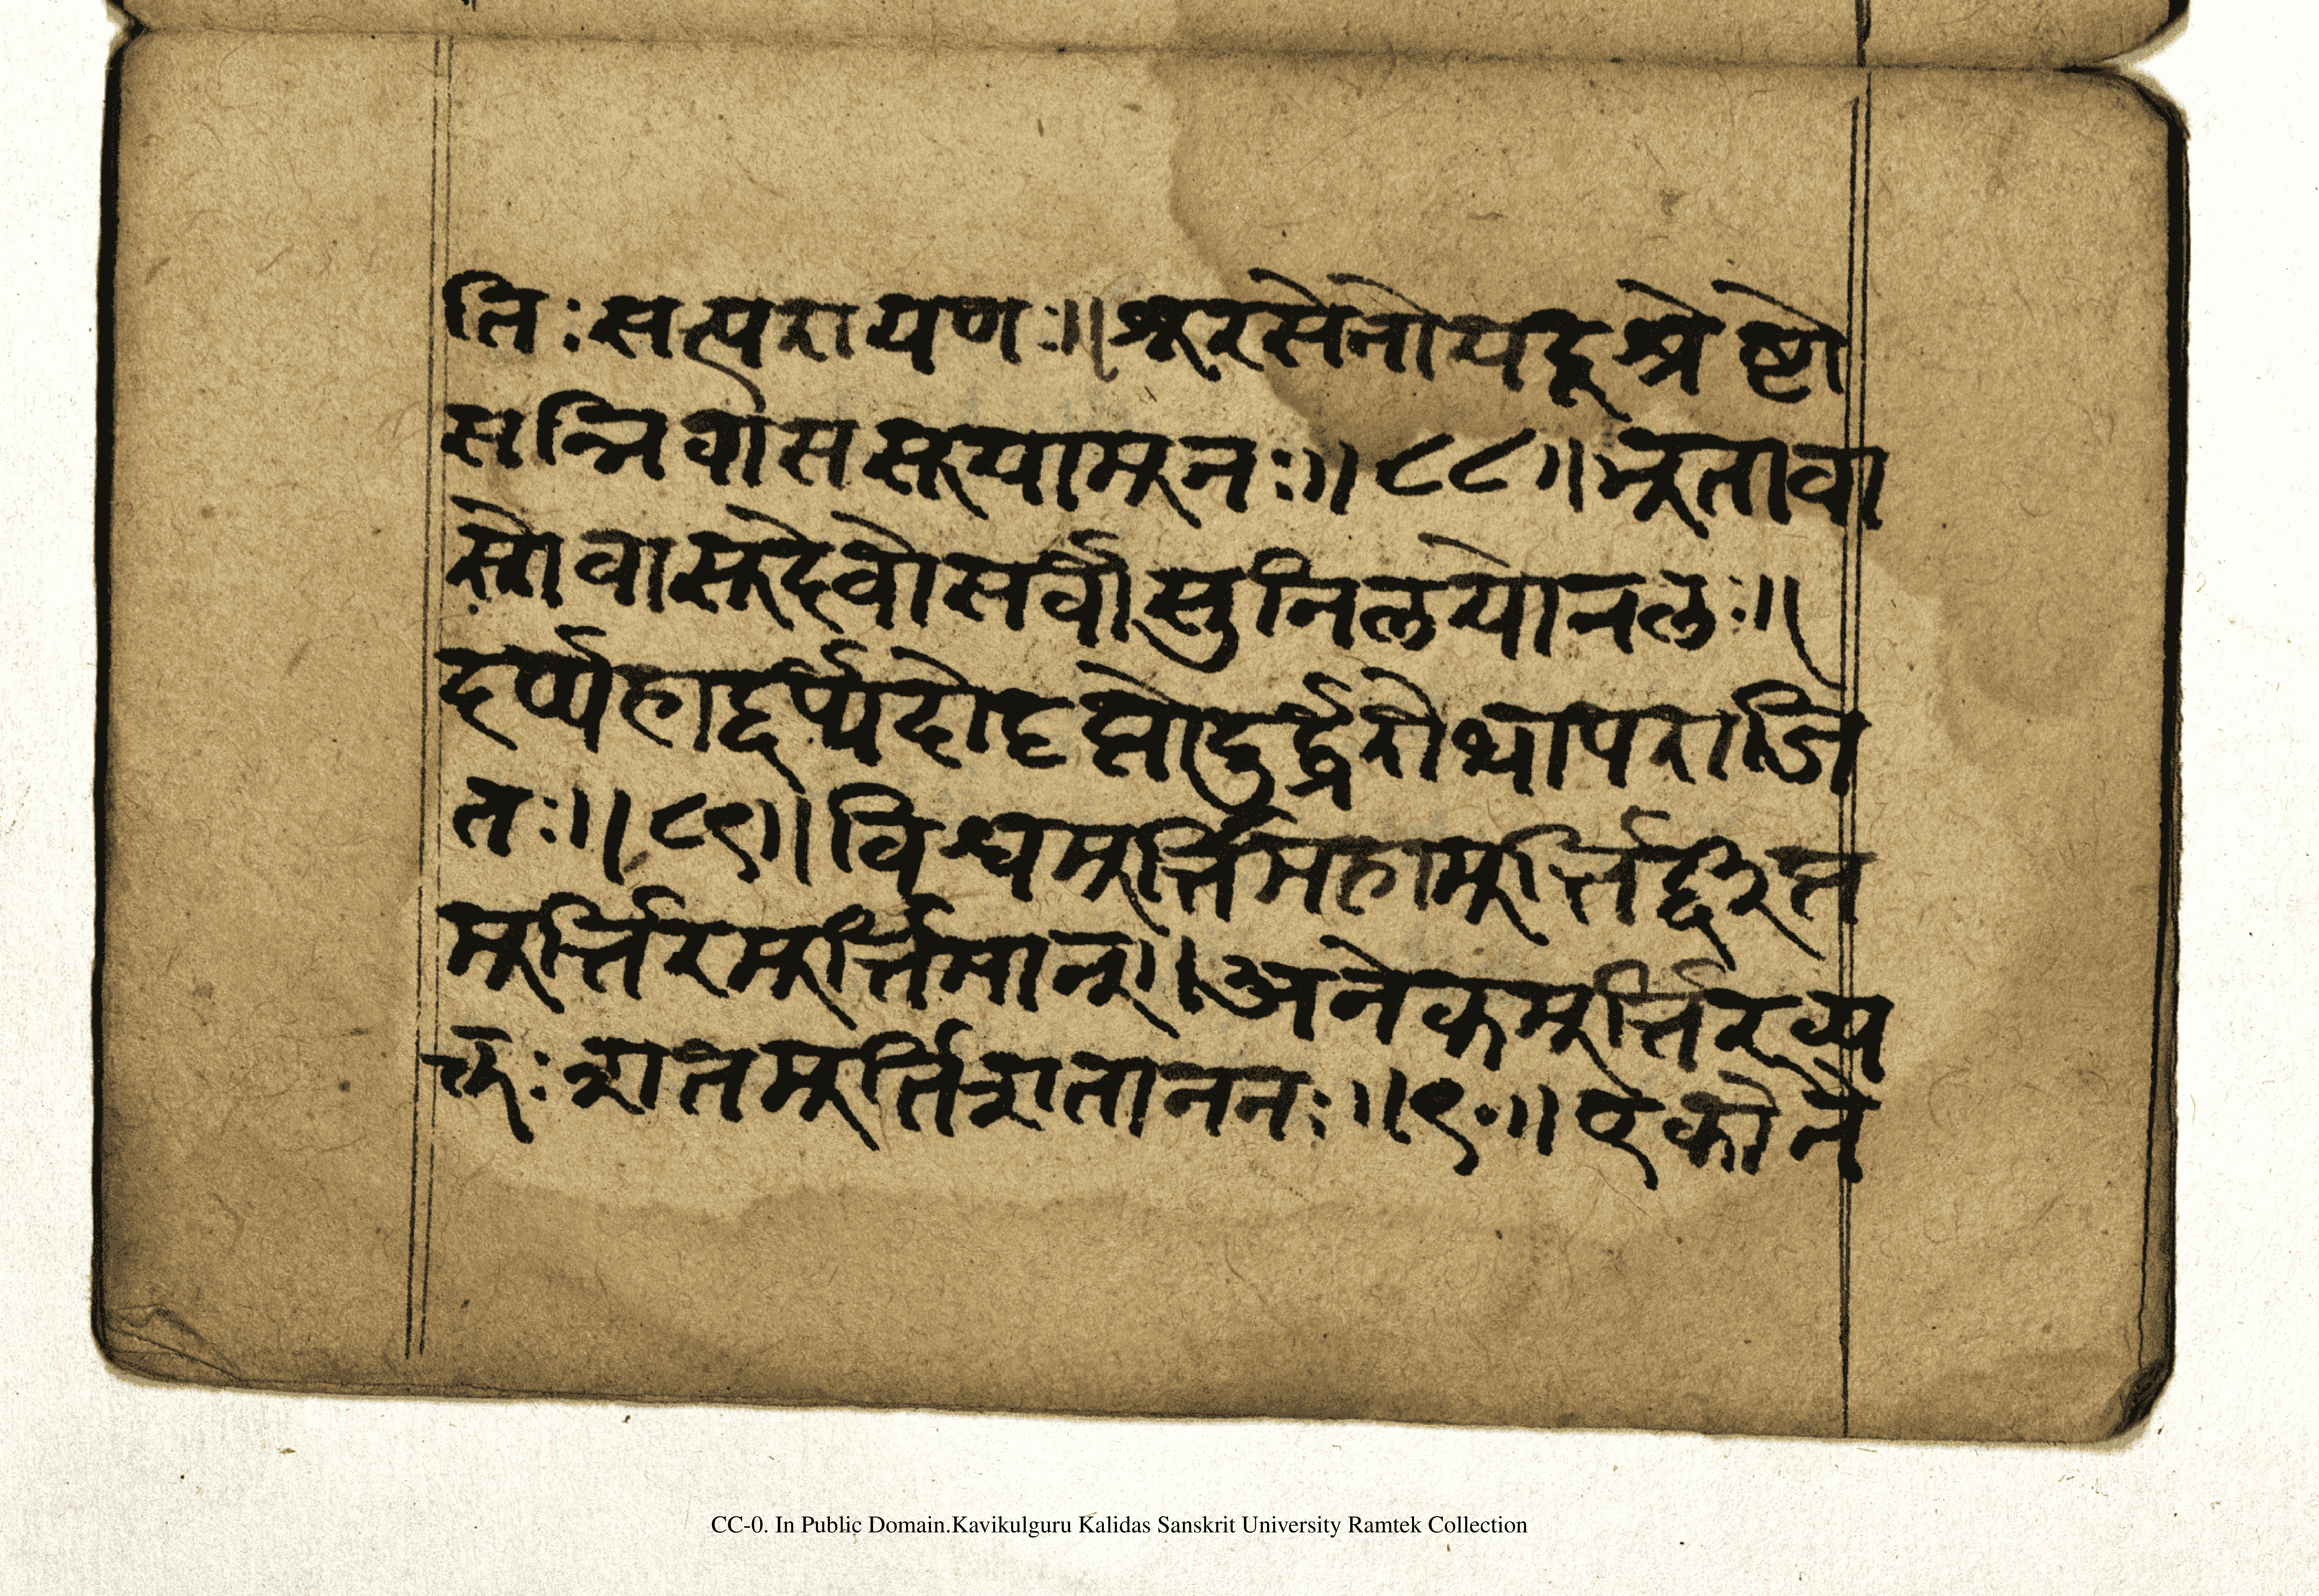 तिः सत्परायणः ॥ शूरसेनो यदूश्रेष्टो
सन्निवास सूयामूनः ॥ ८८ ॥ भूतावा
सो वासूदेवो सर्वासुनिलयोनलः ॥
दर्प्पहा दर्प्पदो दृप्तो दुर्द्धरोथापराजि
तः ॥ ८९ ॥ विश्वमूर्त्तिमहामूर्त्तिर्द्दीप्त
मूर्त्तिरमूर्त्तिमान् ॥ अनेकमूर्त्तिरव्य
क्तः शतमूर्तिशताननः ॥ ९० ॥ एको नै
CC-0. In Public Domain.Kavikulguru Kalidas Sanskrit University Ramtek Collection